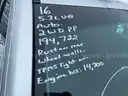 16
5.3L V8
Auto
2WD PP
194,722
Rust on rear
wheel wells
TPMS light on
Engine hrs: 14,200